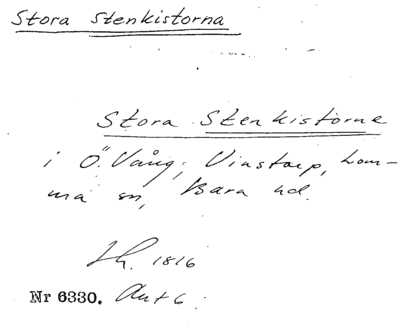 Stora Stenkistorna
Stora Stenkistorne
i Ö. Vång, Vinstorp, Lom-
ma sn, Bara hd.
Lh. 1816
Nr 6330. Akt 6